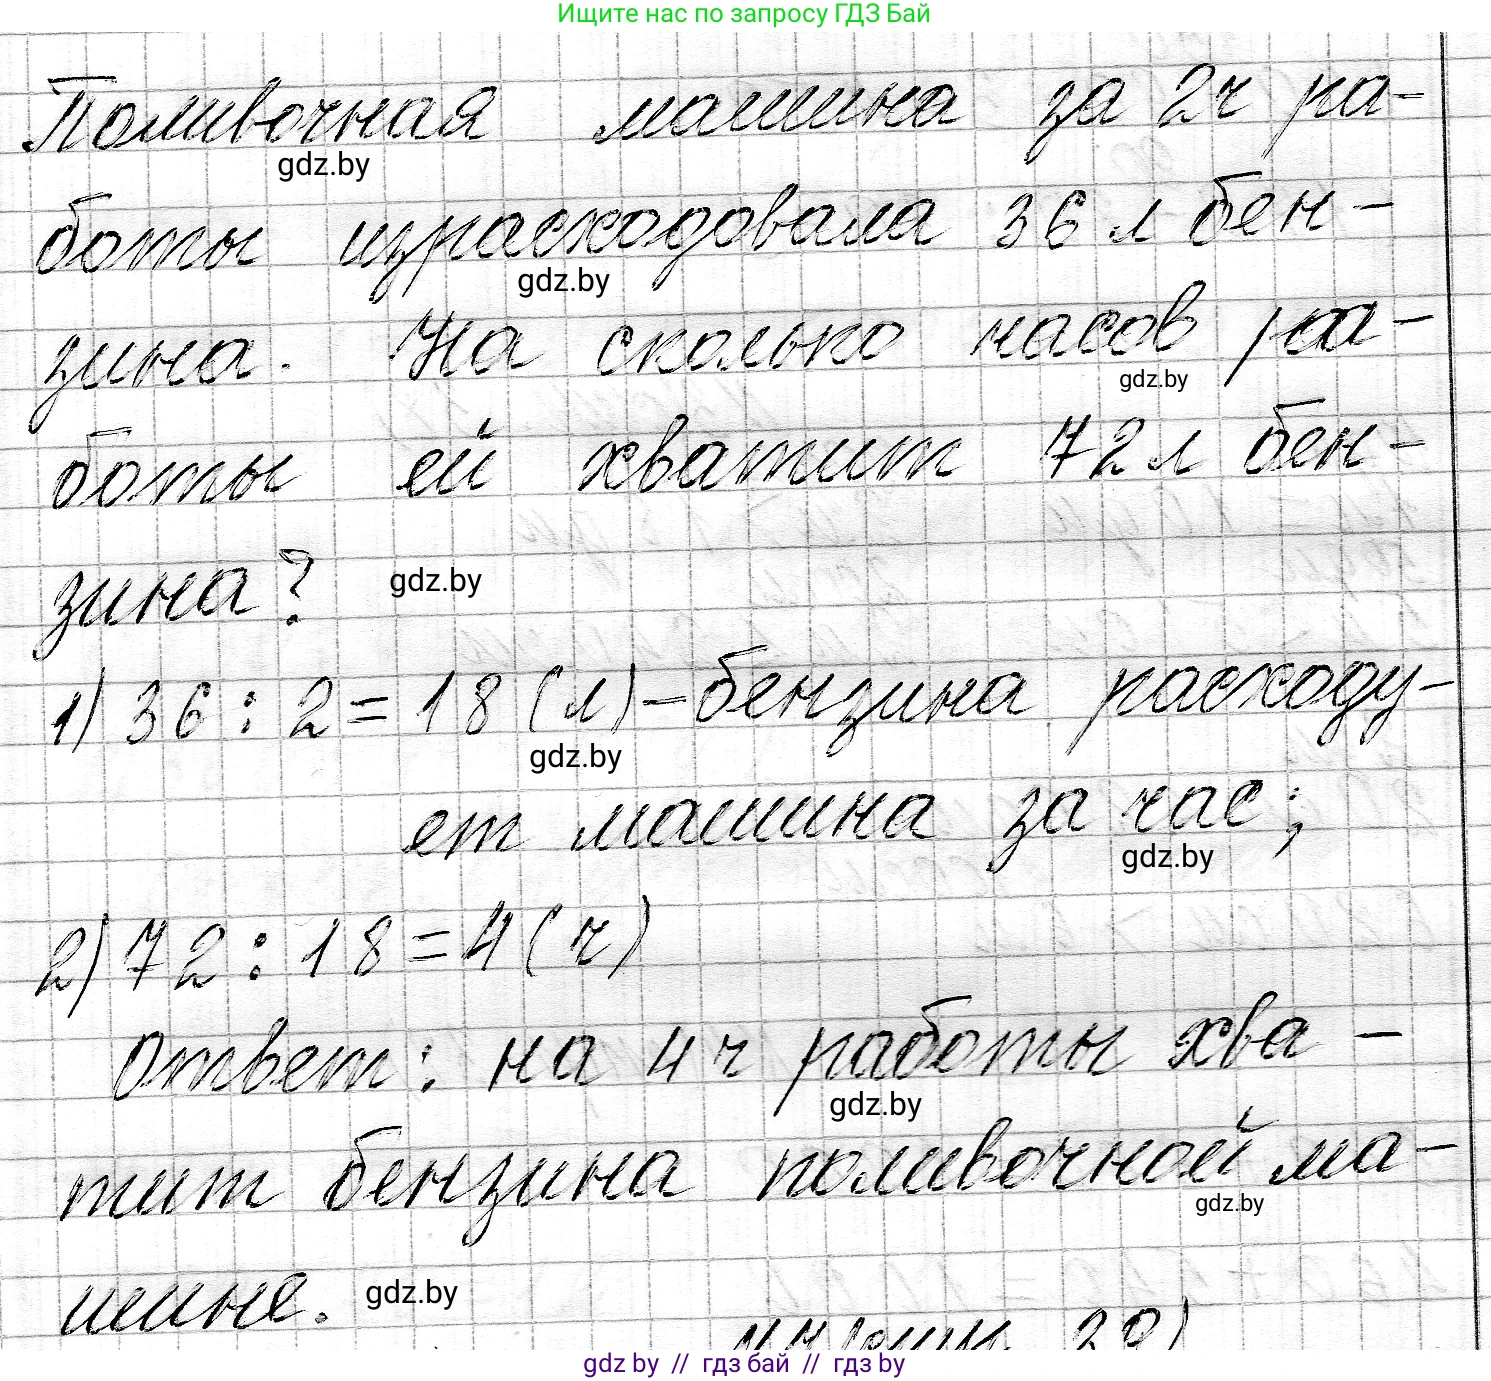 Ищите нас по запросу ГДЗ Бай
Поливочная машина за 2ч ра-
gdz.by
боты израсходовала 36 л бен-
gdz.by
зина. На сколько часов ра-
gdz.by
боты ей хватит 72 л бен-
зина?
gdz.by
1) 36 : 2 = 18 (л) - бензина расходу-
gdz.by
ет машина за час;
gdz.by
2) 72 : 18 = 4 (ч)
Ответ: на 4 ч работы хва-
gdz.by
тит бензина поливочной ма-
gdz.by
шине.
gdz.by
gdz by // гдз бай // гдз by